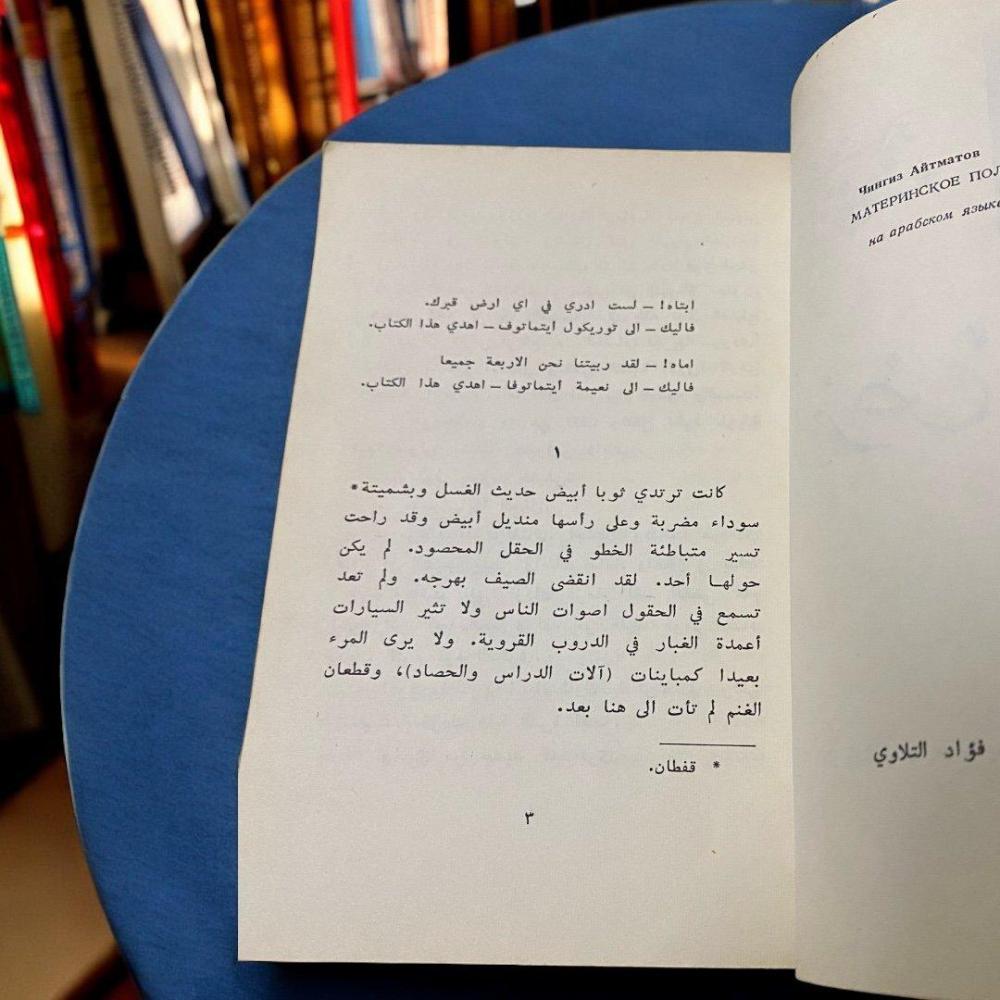 Чингиз Айтматов
МАТЕРИНСКОЕ
на арабском
فؤاد التلاوي
ابتاه! — لست ادري في اي ارض قبرك.
فاليك — الى توريكول ايتماتوف — اهدي هذا الكتاب.
اماه! — لقد ربيتنا نحن الاربعة جميعا
فاليك — الى نعيمة ايتماتوفا — اهدي هذا الكتاب.
١
كانت ترتدي ثوبا أبيض حديث الغسل وبشميتة*
سوداء مضربة وعلى رأسها منديل أبيض وقد راحت
تسير متباطئة الخطو في الحقل المحصود. لم يكن
حولها أحد. لقد انقضى الصيف بهرجه. ولم تعد
تسمع في الحقول اصوات الناس ولا تثير السيارات
أعمدة الغبار في الدروب القروية. ولا يرى المرء
بعيدا كمباينات (آلات الدراس والحصاد)، وقطعان
الغنم لم تأت الى هنا بعد.
* قفطان.
٣